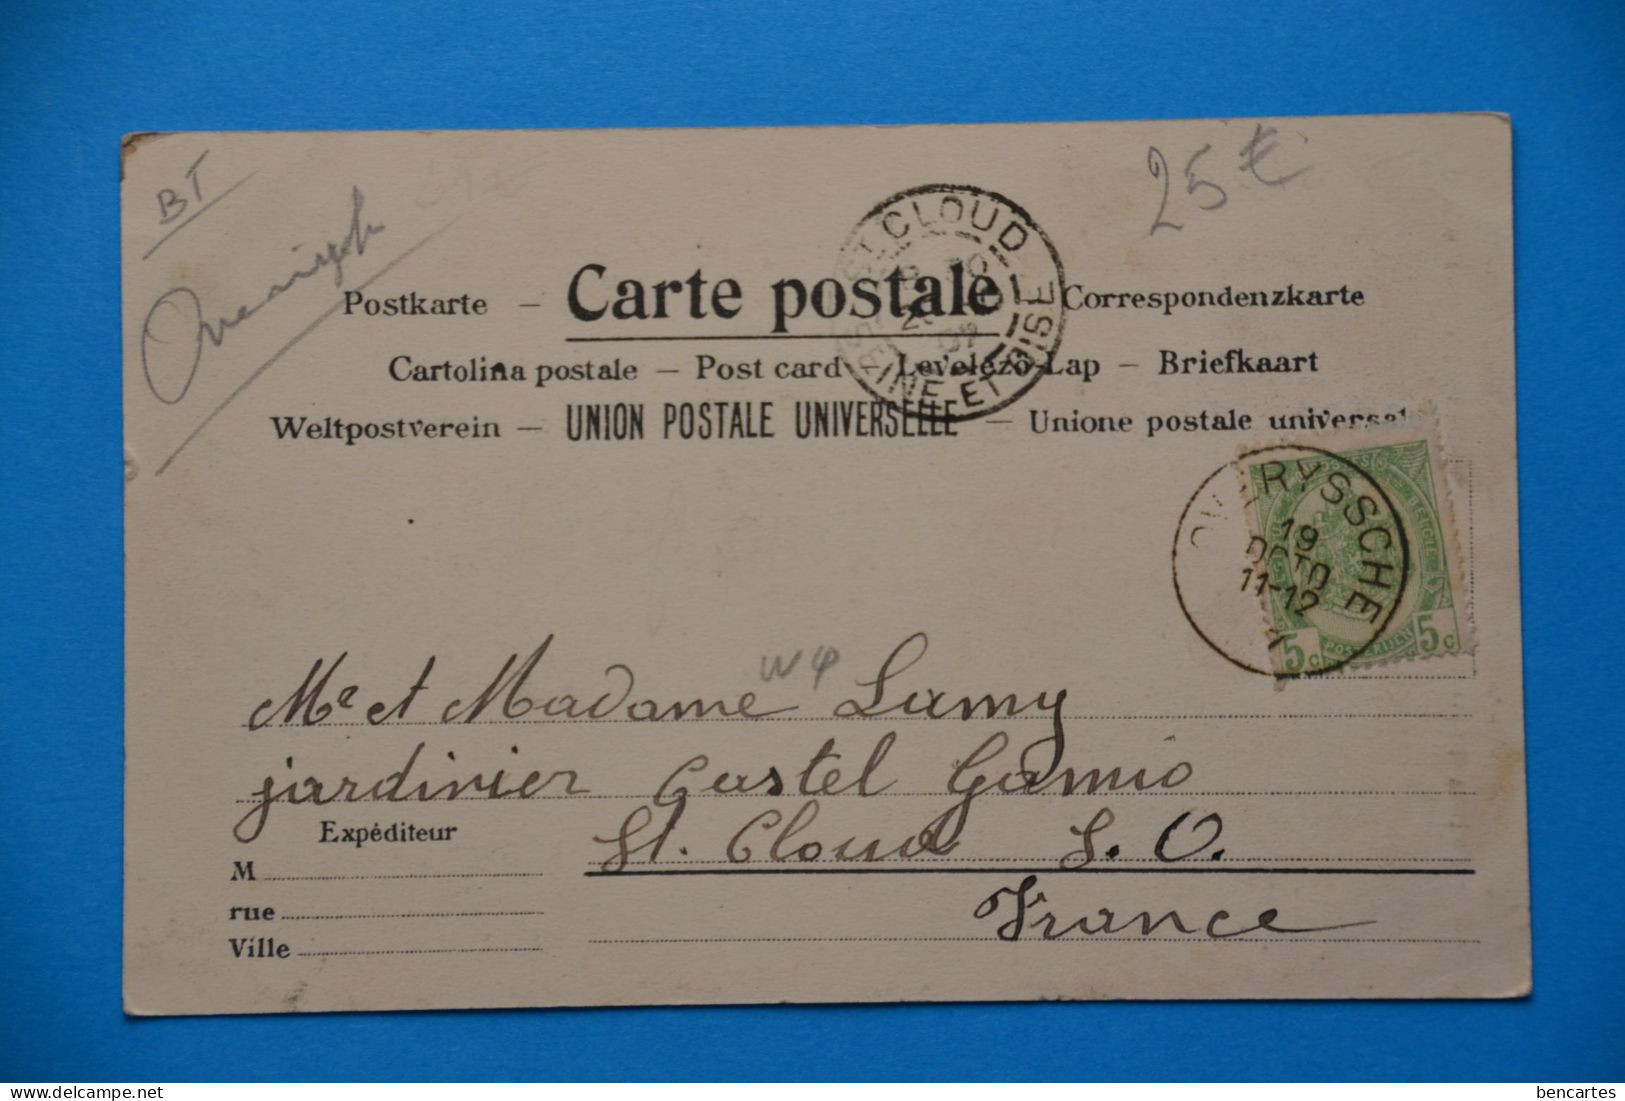 BT
25 €
ST CLOUD
SEINE-ET-OISE
Postkarte – Carte postale – Correspondenzkarte
Cartolina postale – Post card – Levelező-Lap – Briefkaart
Weltpostverein – UNION POSTALE UNIVERSELLE – Unione postale universale
OVERYSSCHE
19
OCTO
11-12
5c POSTERIJEN 5c
Mr et Madame Lamy
jardinier Castel Gamio
St. Cloud S. O.
France
Expéditeur
M
rue
Ville
delcampe.net
bencartes